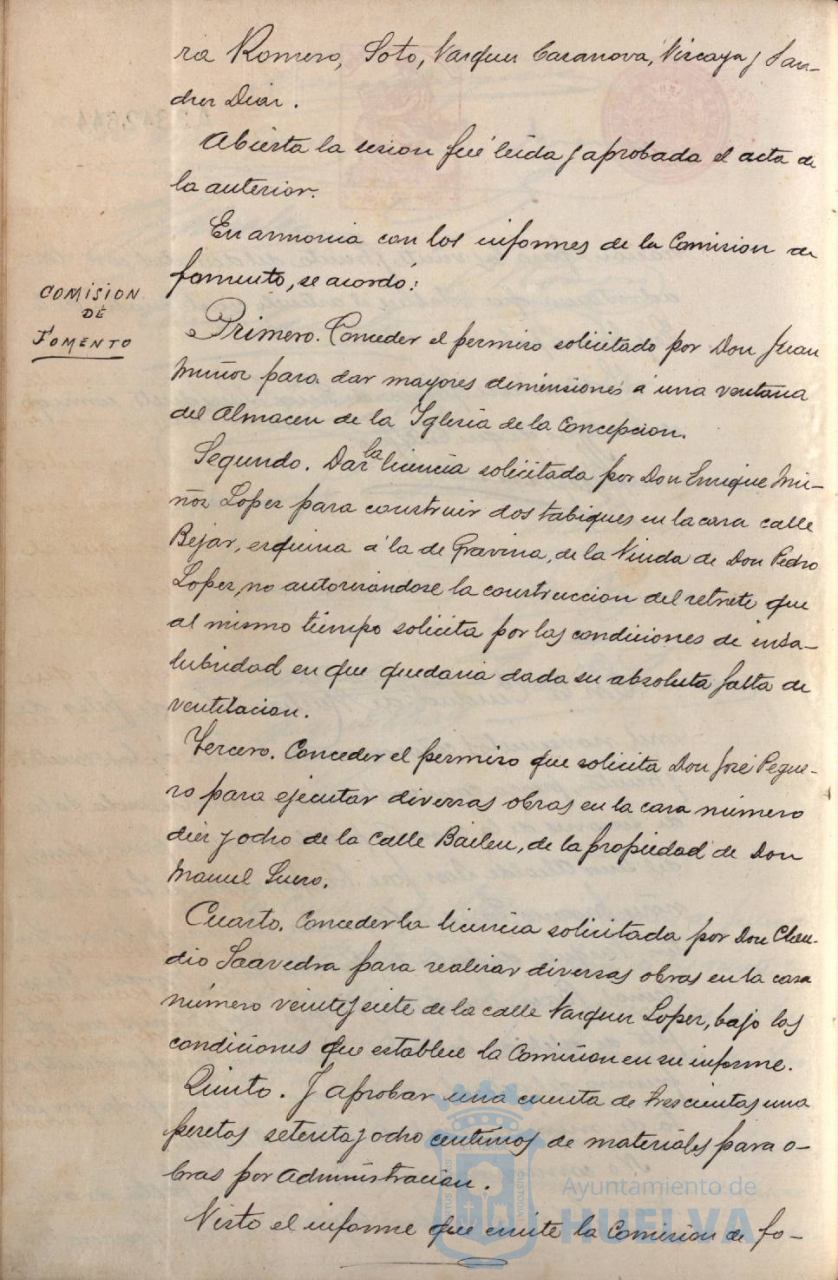 ria Romero, Soto, Vazquez Casanova, Vizcaya y San-
chez Diaz.
Abierta la sesion fué leida y aprobada el acta de
la anterior.
En armonia con los informes de la Comision de
fomento, se acordó:
COMISION
DE
FOMENTO
Primero. Conceder el permiso solicitado por Don Juan
Muñoz para dar mayores dimensiones á una ventana
del Almacen de la Iglesia de la Concepcion.
Segundo. Dar la licencia solicitada por Don Enrique Mu-
ñoz Lopez para construir dos tabiques en la casa calle
Bejar, esquina á la de Gravina, de la Viuda de Don Pedro
Lopez, no autorizándose la construccion del retrete que
al mismo tiempo solicita por las condiciones de insa-
lubridad en que quedaria dada su absoluta falta de
ventilacion.
Tercero. Conceder el permiso que solicita Don José Pegue-
ro para ejecutar diversas obras en la casa número
diez y ocho de la calle Bailen, de la propiedad de Don
Manuel Suero.
Cuarto. Conceder la licencia solicitada por Don Clau-
dio Saavedra para realizar diversas obras en la casa
número veinte y siete de la calle Vazquez Lopez, bajo las
condiciones que establece la Comision en su informe.
Quinto. Y aprobar una cuenta de trescientas una
pesetas setenta y ocho centimos de materiales para o-
bras por Administracion.
Visto el informe que emite la Comision de fo-
Ayuntamiento de
HUELVA